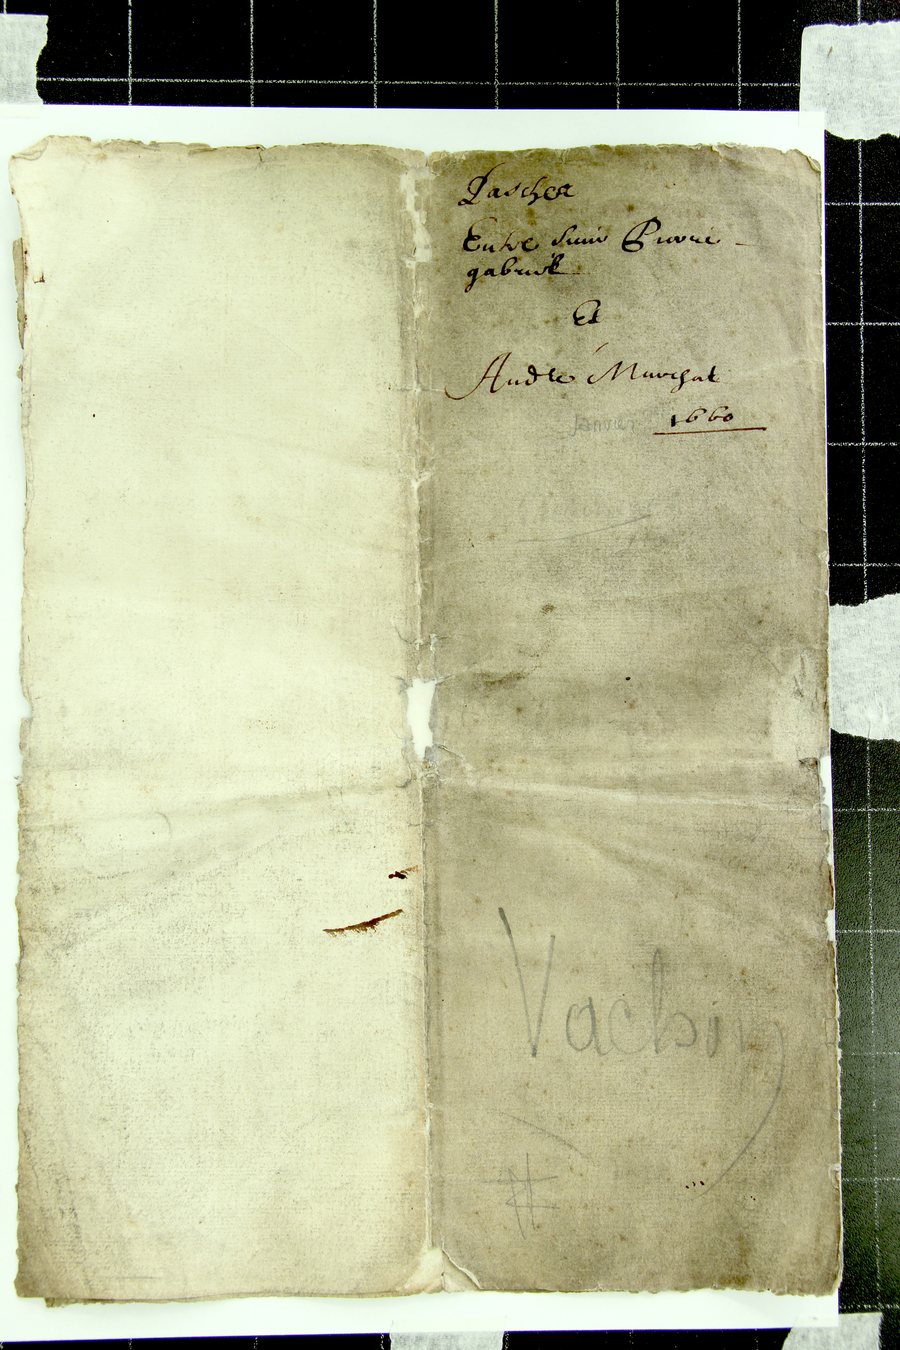 Pascher
Entre Sieur Pierre
gabriel
Et
André Marchal
Janvier 1660
Vachin